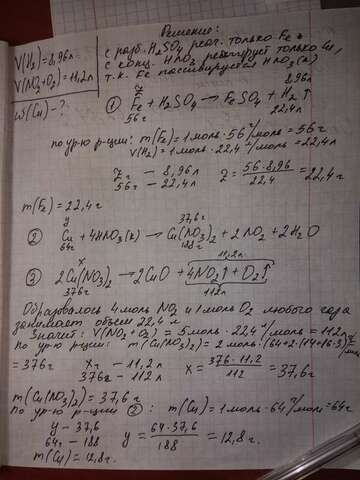 Решение:
V(H₂)=8,96л
V(NO₂+O₂)=11,2л
ω(Cu)-?
с разб. H₂SO₄ реаг. только Fe и
с конц. HNO₃ реагирует только Cu,
т.к. Fe пассивируется HNO₃(к)
z 8,96л
① Fe + H₂SO₄ → FeSO₄ + H₂↑
56г 22,4л
по ур-ю р-ции: m(Fe) = 1моль·56г/моль = 56г
V(H₂) = 1моль·22,4л/моль = 22,4л
zг – 8,96л
56г – 22,4л
z = 56·8,96/22,4 = 22,4г
m(Fe) = 22,4г
y 37,6г
② Cu + 4HNO₃(к) → Cu(NO₃)₂ + 2NO₂ + 2H₂O
64г 188г
x 11,2л
③ 2Cu(NO₃)₂ → 2CuO + 4NO₂↑ + O₂↑
376г 112л
Образовалось 4 моль NO₂ и 1 моль O₂ любого газа
занимает объем 22,4 л
Значит: V(NO₂+O₂) = 5моль·22,4л/моль = 112л
По ур-ю р-ции: m(Cu(NO₃)₂) = 2моль·(64+2·(14+16·3))г/моль
= 376г
xг – 11,2л
376г – 112л
x = 376·11,2/112 = 37,6г
m(Cu(NO₃)₂) = 37,6г
По ур-ю р-ции ②: m(Cu) = 1моль·64г/моль = 64г
y – 37,6
64г – 188
y = 64·37,6/188 = 12,8г.
m(Cu) = 12,8г.